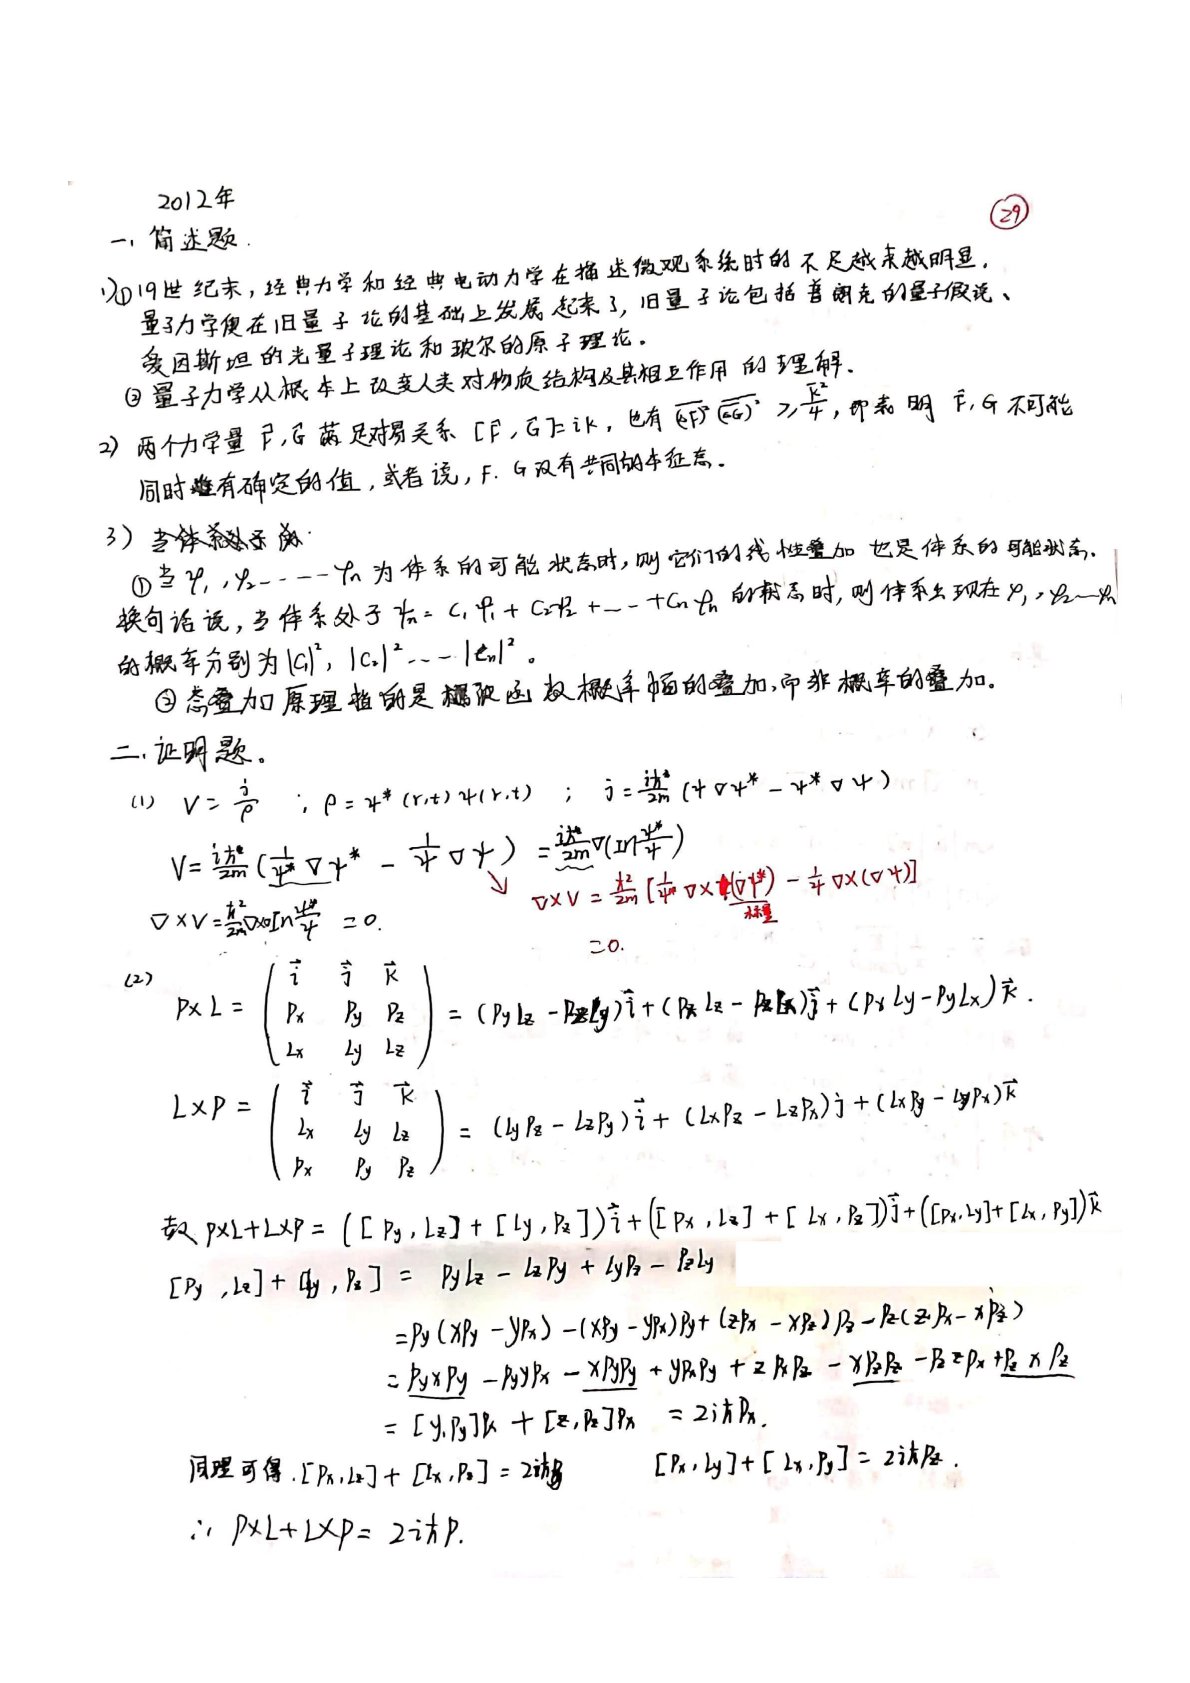 2012年
29
一、简述题.
1)①19世纪末，经典力学和经典电动力学在描述微观系统时的不足越来越明显.
量子力学便在旧量子论的基础上发展起来了，旧量子论包括普朗克的量子假说、
爱因斯坦的光量子理论和玻尔的原子理论。
②量子力学从根本上改变人类对物质结构及其相互作用的理解.
2) 两个力学量 F̂, Ĝ 满足对易关系 [F̂, Ĝ]=ik, 也有 \overline{(ΔF)²} \overline{(ΔG)²} ≥ k²/4, 即表明 F̂, G 不可能
同时有确定的值, 或者说, F. G没有共同的本征态.
3)
①当 φ₁, φ₂ ---- φn 为体系的可能状态时, 则它们的线性叠加也是体系的可能状态.
换句话说, 当体系处于 ψn = C₁φ₁ + C₂φ₂ + --- + Cnφn 的状态时, 则体系出现在 φ₁, φ₂---φn
的概率分别为 |C₁|², |C₂|² --- |Cn|²。
②态叠加原理指的是函数概率幅的叠加,而非概率的叠加.
二、证明题。
(1) V = j/ρ ; ρ = ψ*(r,t)ψ(r,t) ; j = iħ/2m (ψ∇ψ* - ψ*∇ψ)
V = iħ/2m (1/ψ* ∇ψ* - 1/ψ ∇ψ) = iħ/2m ∇(ln ψ*/ψ)
∇×V = ħ²/2m [1/ψ* ∇×(∇ψ*) - 1/ψ ∇×(∇ψ)]
标量
∇×V = ħ²/2m ∇×∇ln ψ*/ψ = 0.
=0.
(2)
P×L = ( i⃗ j⃗ k⃗
Px Py Pz
Lx Ly Lz ) = (PyLz - PzLy)i⃗ + (PxLz - PzLx)j⃗ + (PxLy - PyLx)k⃗.
L×P = ( i⃗ j⃗ k⃗
Lx Ly Lz
Px Py Pz ) = (LyPz - LzPy)i⃗ + (LxPz - LzPx)j + (LxPy - LyPx)k⃗
故 P×L+L×P = ([Py, Lz] + [Ly, Pz])i⃗ + ([Px, Lz] + [Lx, Pz])j⃗ + ([Px, Ly] + [Lx, Py])k⃗
[Py, Lz] + [Ly, Pz] = PyLz - LzPy + LyPz - PzLy
= Py(xPy - yPx) - (xPy - yPx)Py + (zPx - xPz)Pz - Pz(zPx - xPz)
= PyxPy - PyyPx - xPyPy + yPxPy + zPxPz - xPzPz - PzzPx + PzxPz
= [y, Py]Px + [z, Pz]Px = 2iħPx.
同理可得. [Px, Lz] + [Lx, Pz] = 2iħPy [Px, Ly] + [Lx, Py] = 2iħPz.
∴ P×L+L×P = 2iħP.